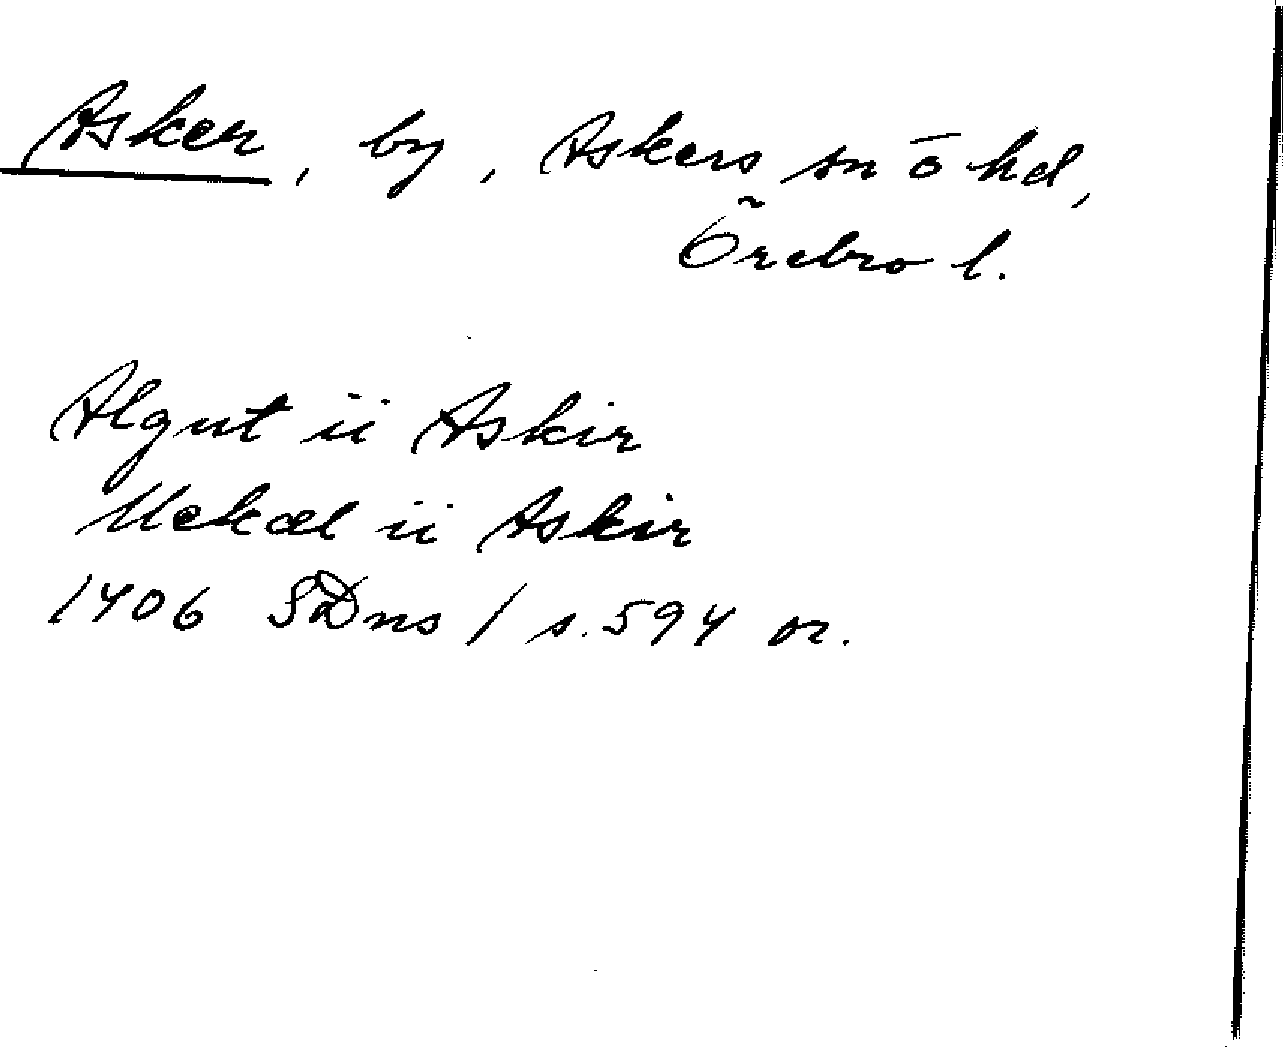 Asker, by, Askers sn o hd,
Örebro l.
Algut ii Askir
Mekæl ii Askir
1406 SDns 1 s. 594 or.